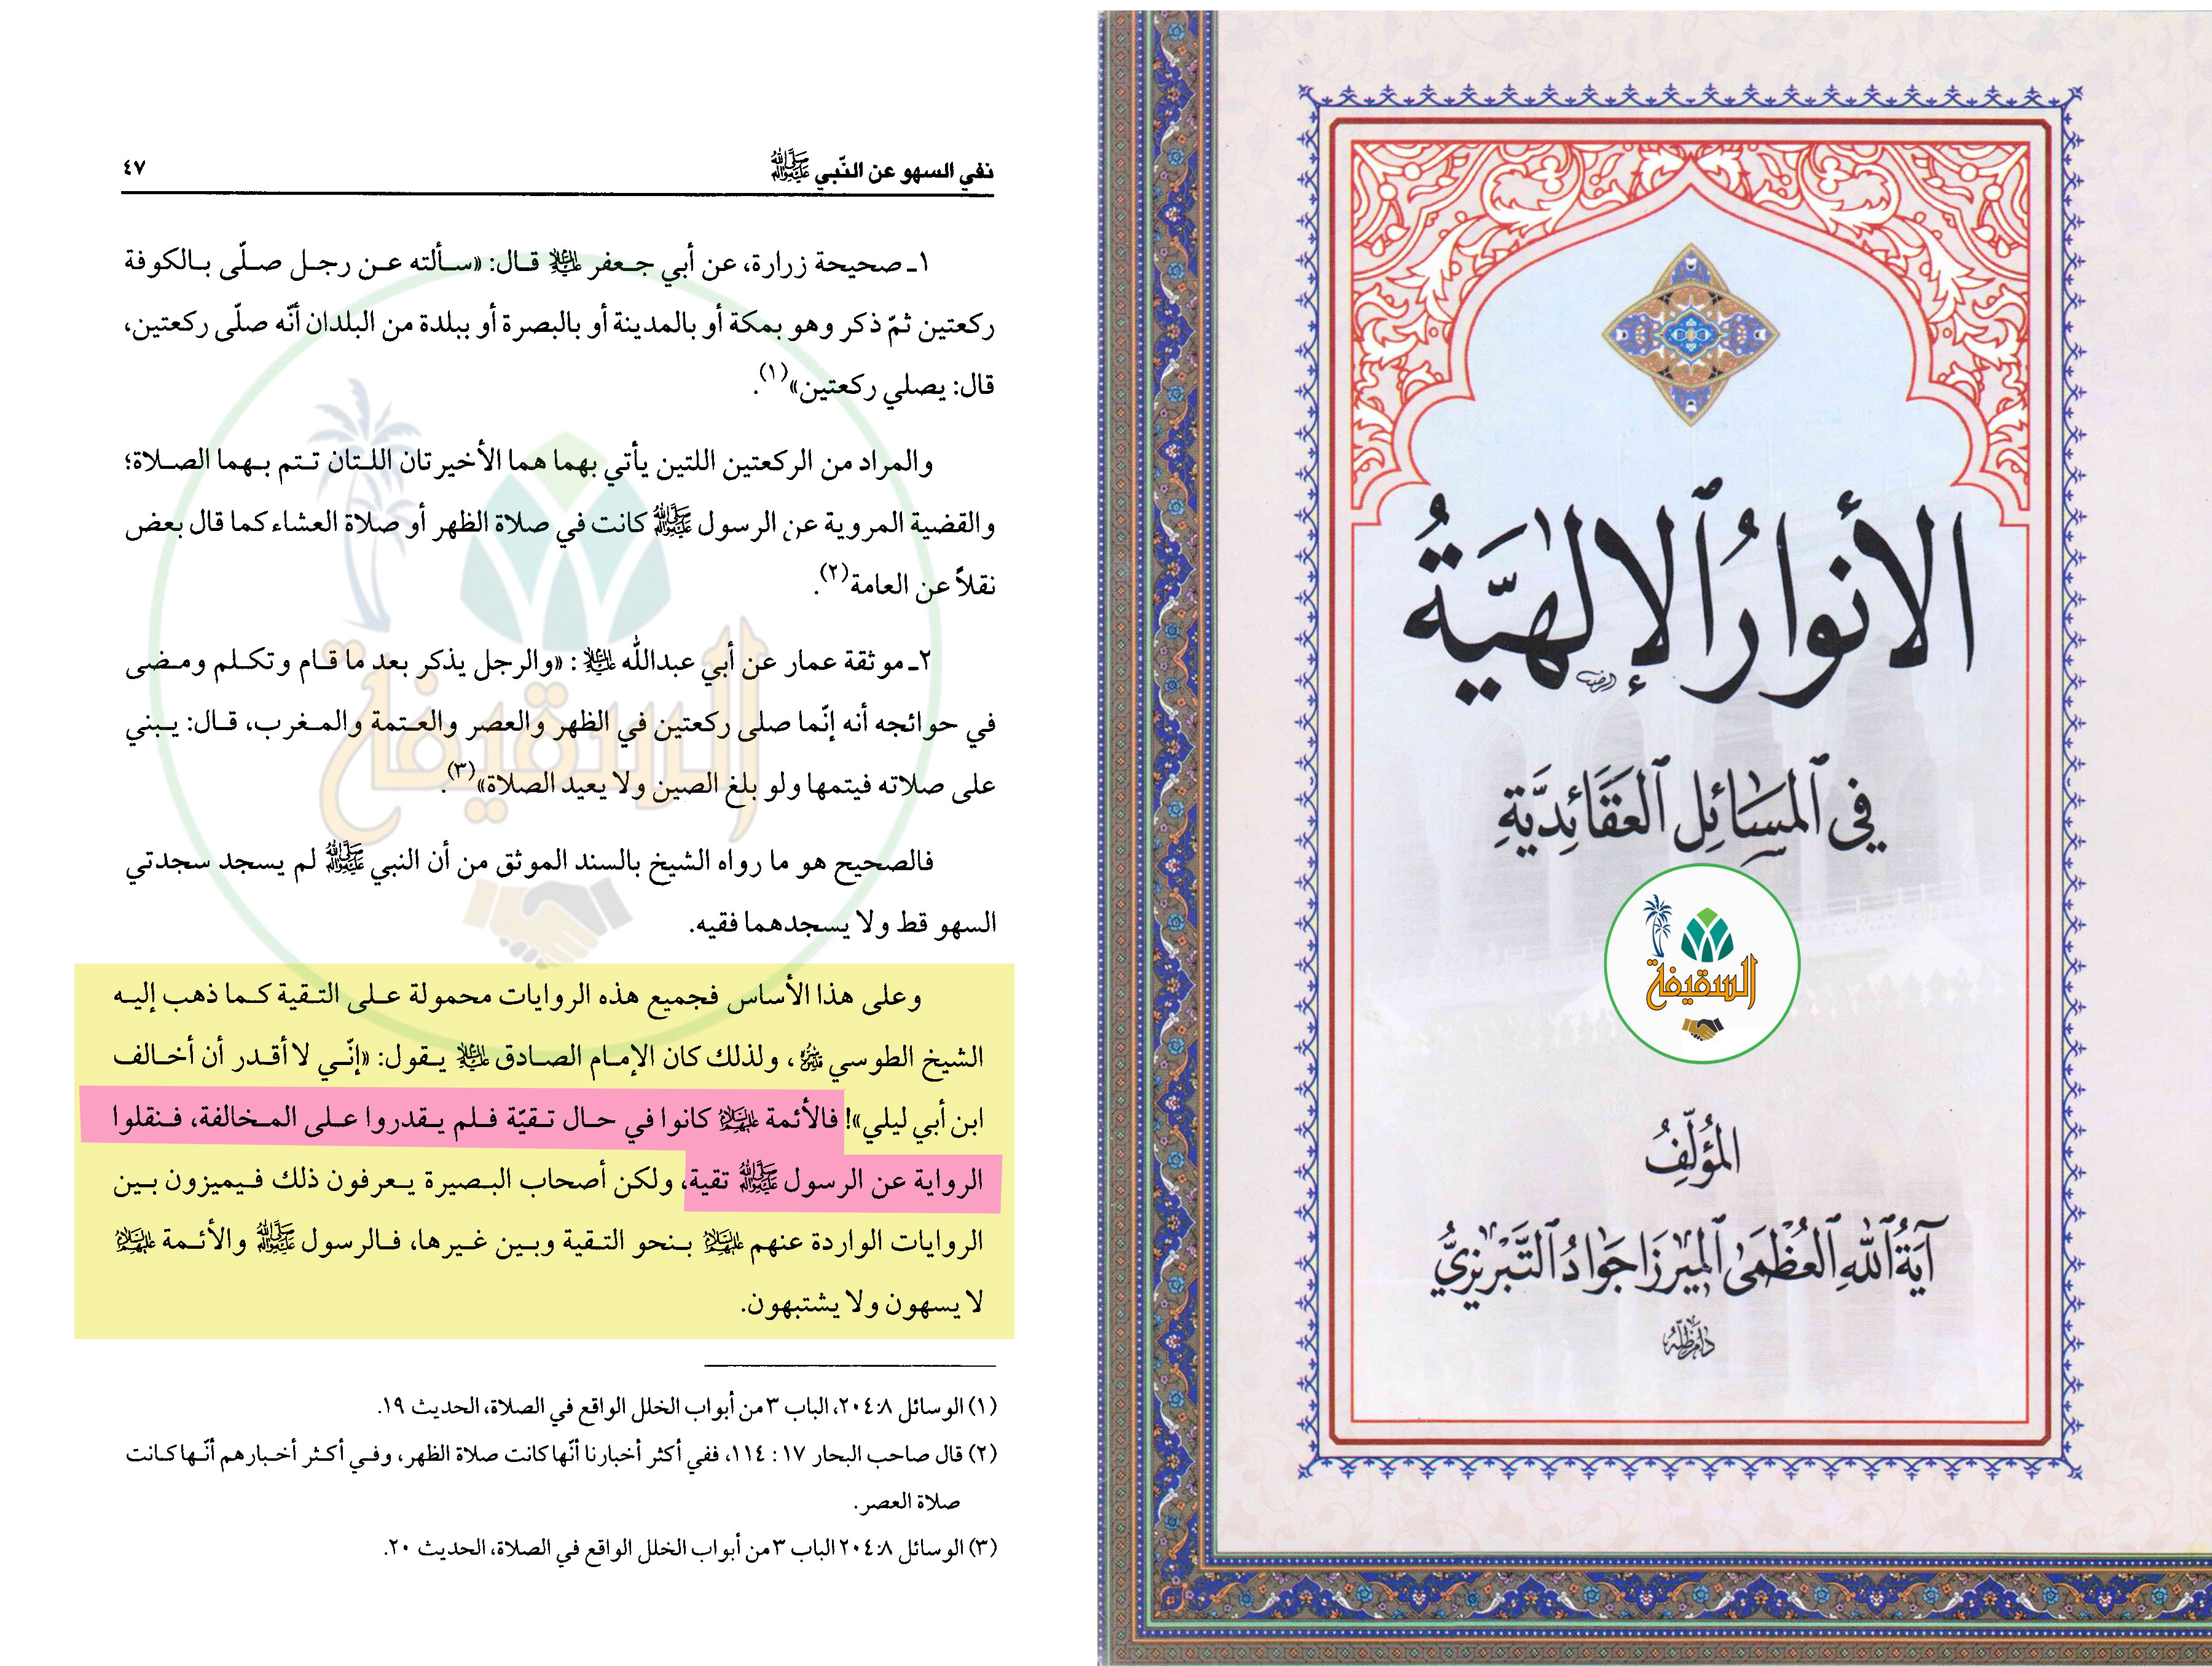 نفي السهو عن النّبي ﷺ ٤٧
١ـ صحيحة زرارة، عن أبي جعفر عليه السلام قال: «سألته عن رجل صلّى بالكوفة
ركعتين ثمّ ذكر وهو بمكة أو بالمدينة أو بالبصرة أو ببلدة من البلدان أنّه صلّى ركعتين،
قال: يصلي ركعتين»(١).
والمراد من الركعتين اللتين يأتي بهما هما الأخيرتان اللتان تتم بهما الصلاة؛
والقضية المروية عن الرسول ﷺ كانت في صلاة الظهر أو صلاة العشاء كما قال بعض
نقلاً عن العامة(٢).
٢ـ موثقة عمار عن أبي عبدالله عليه السلام : «والرجل يذكر بعد ما قام وتكلم ومضى
في حوائجه أنه إنّما صلى ركعتين في الظهر والعصر والعتمة والمغرب، قال: يبني
على صلاته فيتمها ولو بلغ الصين ولا يعيد الصلاة»(٣).
فالصحيح هو ما رواه الشيخ بالسند الموثق من أن النبي ﷺ لم يسجد سجدتي
السهو قط ولا يسجدهما فقيه.
وعلى هذا الأساس فجميع هذه الروايات محمولة على التقية كما ذهب إليه
الشيخ الطوسي قدس سره، ولذلك كان الإمام الصادق عليه السلام يقول: «إنّي لا أقدر أن أخالف
ابن أبي ليلي»! فالأئمة عليهم السلام كانوا في حال تقيّة فلم يقدروا على المخالفة، فنقلوا
الرواية عن الرسول ﷺ تقية، ولكن أصحاب البصيرة يعرفون ذلك فيميزون بين
الروايات الواردة عنهم عليهم السلام بنحو التقية وبين غيرها، فالرسول ﷺ والأئمة عليهم السلام
لا يسهون ولا يشتبهون.
(١) الوسائل ٢٠٤:٨، الباب ٣ من أبواب الخلل الواقع في الصلاة، الحديث ١٩.
(٢) قال صاحب البحار ١٧ : ١١٤، ففي أكثر أخبارنا أنّها كانت صلاة الظهر، وفي أكثر أخبارهم أنّها كانت
صلاة العصر.
(٣) الوسائل ٢٠٤:٨ الباب ٣ من أبواب الخلل الواقع في الصلاة، الحديث ٢٠.
السقيفة
الأنوار الإلهيّة
في المسائل العقائديّة
السقيفة
المؤلّف
آية الله العظمى الميرزا جواد التّبريزيّ
دام ظلّه